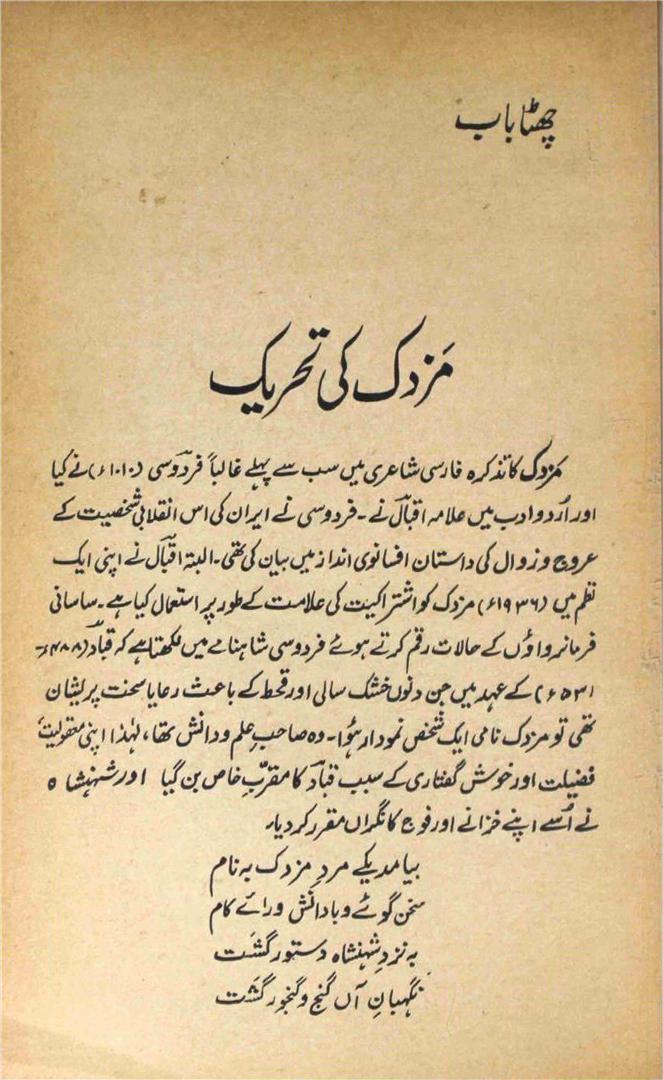 چھٹا باب
مَزدک کی تحریک
مَزدک کا تذکرہ فارسی شاعری میں سب سے پہلے غالباً فردوسی (۱۰۱۰ء) نے کیا
اور اُردو ادب میں علامہ اقبالؔ نے۔ فردوسی نے ایران کی اس انقلابی شخصیت کے
عروج و زوال کی داستان افسانوی انداز میں بیان کی تھی۔ البتہ اقبالؔ نے اپنی ایک
نظم میں (۱۹۳۶ء) مزدک کو اشتراکیت کی علامت کے طور پر استعمال کیا ہے۔ ساسانی
فرمانرواؤں کے حالات رقم کرتے ہوئے فردوسی شاہنامے میں لکھتا ہے کہ قباد (۴۸۸ء-
۵۳۱ء) کے عہد میں جن دنوں خشک سالی اور قحط کے باعث رعایا سخت پریشان
تھی تو مزدک نامی ایک شخص نمودار ہُوا۔ وہ صاحبِ علم و دانش تھا، لہٰذا اپنی معقولیت،
فضیلت اور خوش گفتاری کے سبب قباد کا مقرّبِ خاص بن گیا اور شہنشاہ
نے اُسے اپنے خزانے اور فوج کا نگراں مقرر کر دیا۔
بیامد یکے مردِ مزدک بہ نام
سخن گوئے و بادانش ورائے کام
بہ نزدِ شہنشاہ دستور گشت
نگہبانِ آں گنج و گنجور گشت